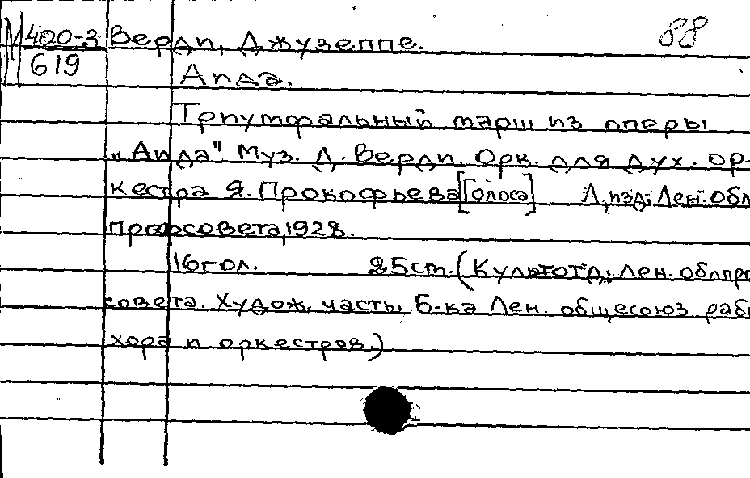 М 400-3 Верди, Джузеппе. 88
619 Аида.
Триумфальный марш из оперы
„Аида" Муз. Д. Верди. Орк. для дух. ор-
кестра Я. Прокофьева [Голоса] Л, изд. Лен. обл
профсовета, 1928.
16 гол. 25 cm. (Культотд. Лен. облпро
совета. Худож. часть. Б-ка Лен. общесоюз. раб
хора и оркестров.)